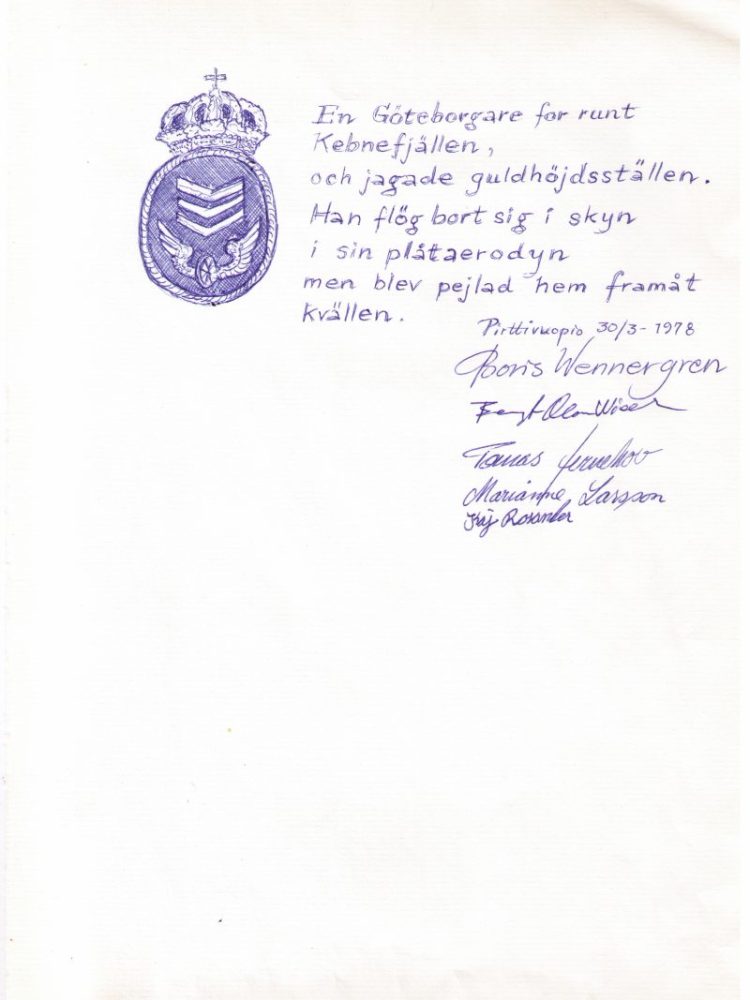 En Göteborgare for runt
Kebnefjällen,
och jagade guldhöjdsställen.
Han flög bort sig i skyn
i sin plåtaerodyn
men blev pejlad hem framåt
kvällen.
Pirttivuopio 30/3-1978
Boris Wennergren
Tomas
Marianne Larsson